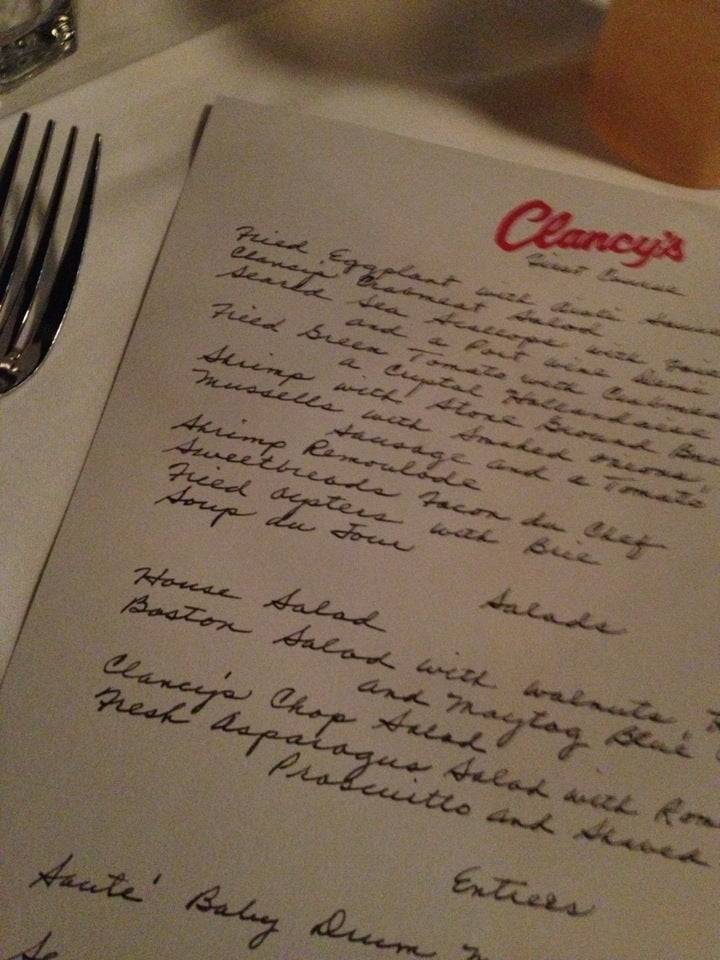 Clancy's
First Course
Fried Eggplant with Aioli Sauce
Clancy's Crabmeat Salad
Seared Sea Scallops with
and a Port Wine Demi
Fried Green Tomato with Crabmea
a Crystal Hollandaise
Shrimp with Stone Ground
Mussells with Smoked Onions,
Sausage and a Tomato
Shrimp Remoulade
Sweetbreads Facon du Chef
Fried Oysters with Brie
Soup du Jour
Salads
House Salad
Boston Salad with Walnuts,
and Maytag Blue
Clancy's Chop Salad
Fresh Asparagus Salad with Rom
Proscuitto and Shaved
Entrees
Sauté Baby Drum
Se